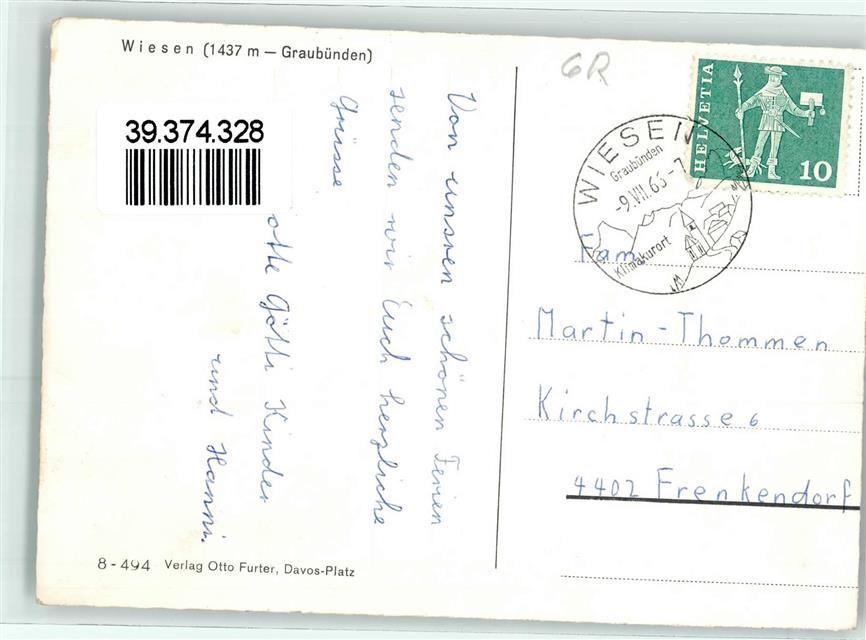 Wiesen (1437 m — Graubünden)
GR
HELVETIA
10
WIESEN
Graubünden
-9.VII.65-7
Klimakurort
39.374.328
Von unsren schönen Ferien
senden wir Euch herzliche
Grüsse
Götti Kinder
und Hanni.
Fam.
Martin-Thommen
Kirchstrasse 6
4402 Frenkendorf
8-494 Verlag Otto Furter, Davos-Platz